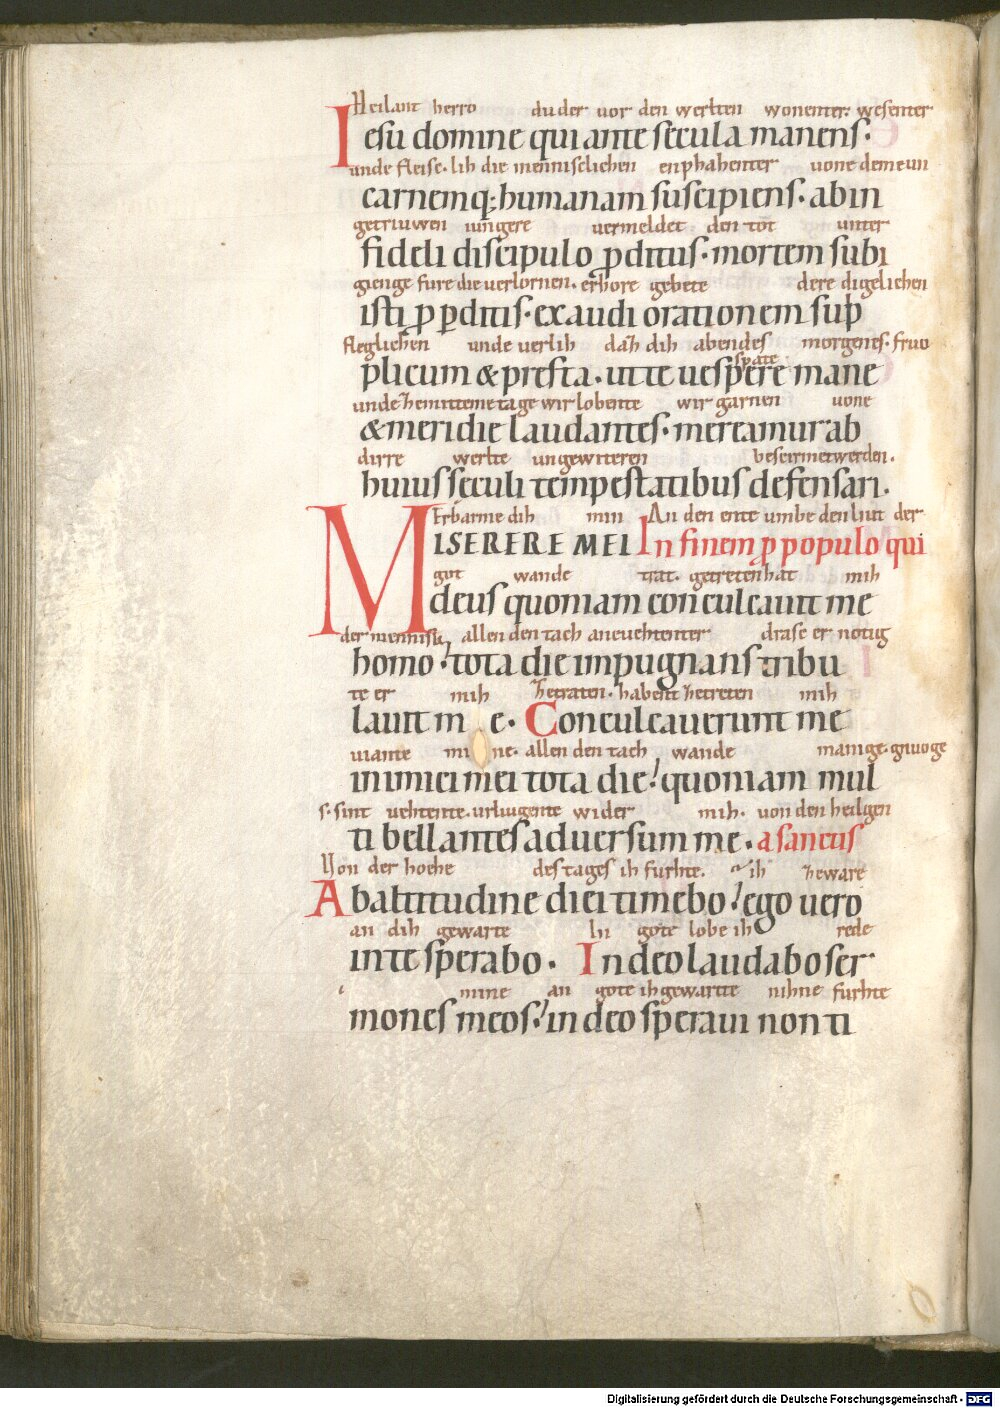 Heilant herro du der vor den werlten wonenter. wesenter
Iesu domine qui ante secula manens.
unde fleisc. lih die mennisclichen enphahenter vone deme un
carnemq; humanam suscipiens. ab in
getriuwen iungere vermeldet den tōt unter
fideli discipulo ꝓditus. mortem subi
gienge fure die verlornen. erhore gebete dere digelichen
isti ꝓ ꝑditis. exaudi orationem sup
fleglichen unde verlih dah dih abendes morgenes. fruo
plicum & presta. ut te vespere mane
spate
unde ze mittemetage wir lobente wir garnen vone
& meridie laudantes. mereamur ab
dirre werlte ungewiteren bescirmet werden.
huius seculi tempestatibus defensari.
Erbarme dih min An den ente umbe den liut der
MISERERE MEI In finem ꝓ populo qui
got wande trat. getreten hat mih
deus quoniam conculcavit me
der mennisk allen den tach anevehtenter drasc er notig
homo. tota die impugnans tribu
te er mih getraten. habent getreten mih
lavit me. Conculcaverunt me
viante mine. allen den tach wande manige. gnuoge
inimici mei tota die. quoniam mul
s. sint vehtente. urliugente wider mih. von den heilgen
ti bellantes adversum me. a sanctis
Von der hoehe des tages ih furhte. ih zeware
Ab altitudine diei timebo. ego vero
an dih gewarte In gote lobe ih rede
in te sperabo. In deo laudabo ser
mine an gote ih gewartte nihne furhte
mones meos. in deo speravi non ti
Digitalisierung gefördert durch die Deutsche Forschungsgemeinschaft - DFG